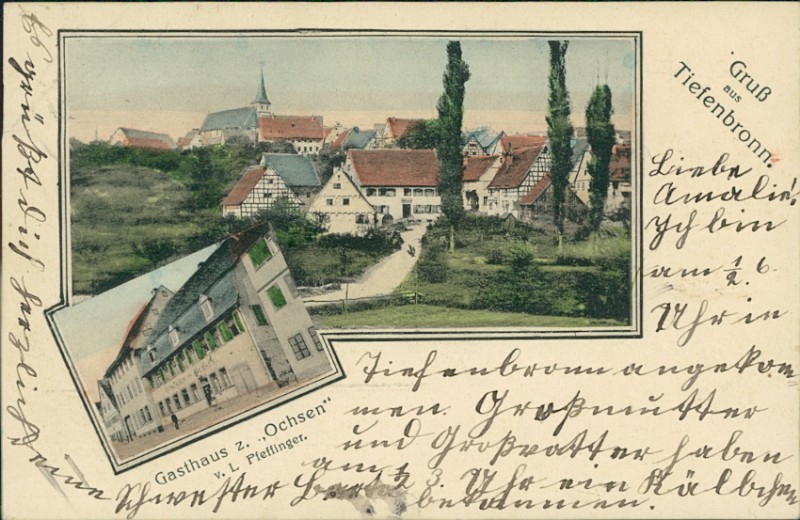 Gruß
aus
Tiefenbronn.
Liebe
Amalie!
Ich bin
am ½ 6.
Uhr in
Tiefenbronn angekom-
men. Großmutter
und Großvatter haben
am ½ 3. Uhr ein Kälbchen
bekommen.
grüßt Dich herzlich
Deine
Schwester Berta
Gasthaus z. „Ochsen"
v. L. Pfeffinger.